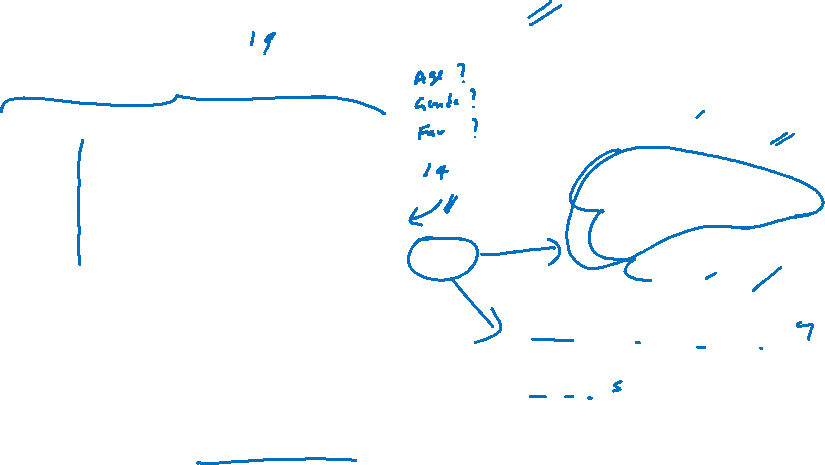 19
Age ?
Gende ?
Fav ?
14
5